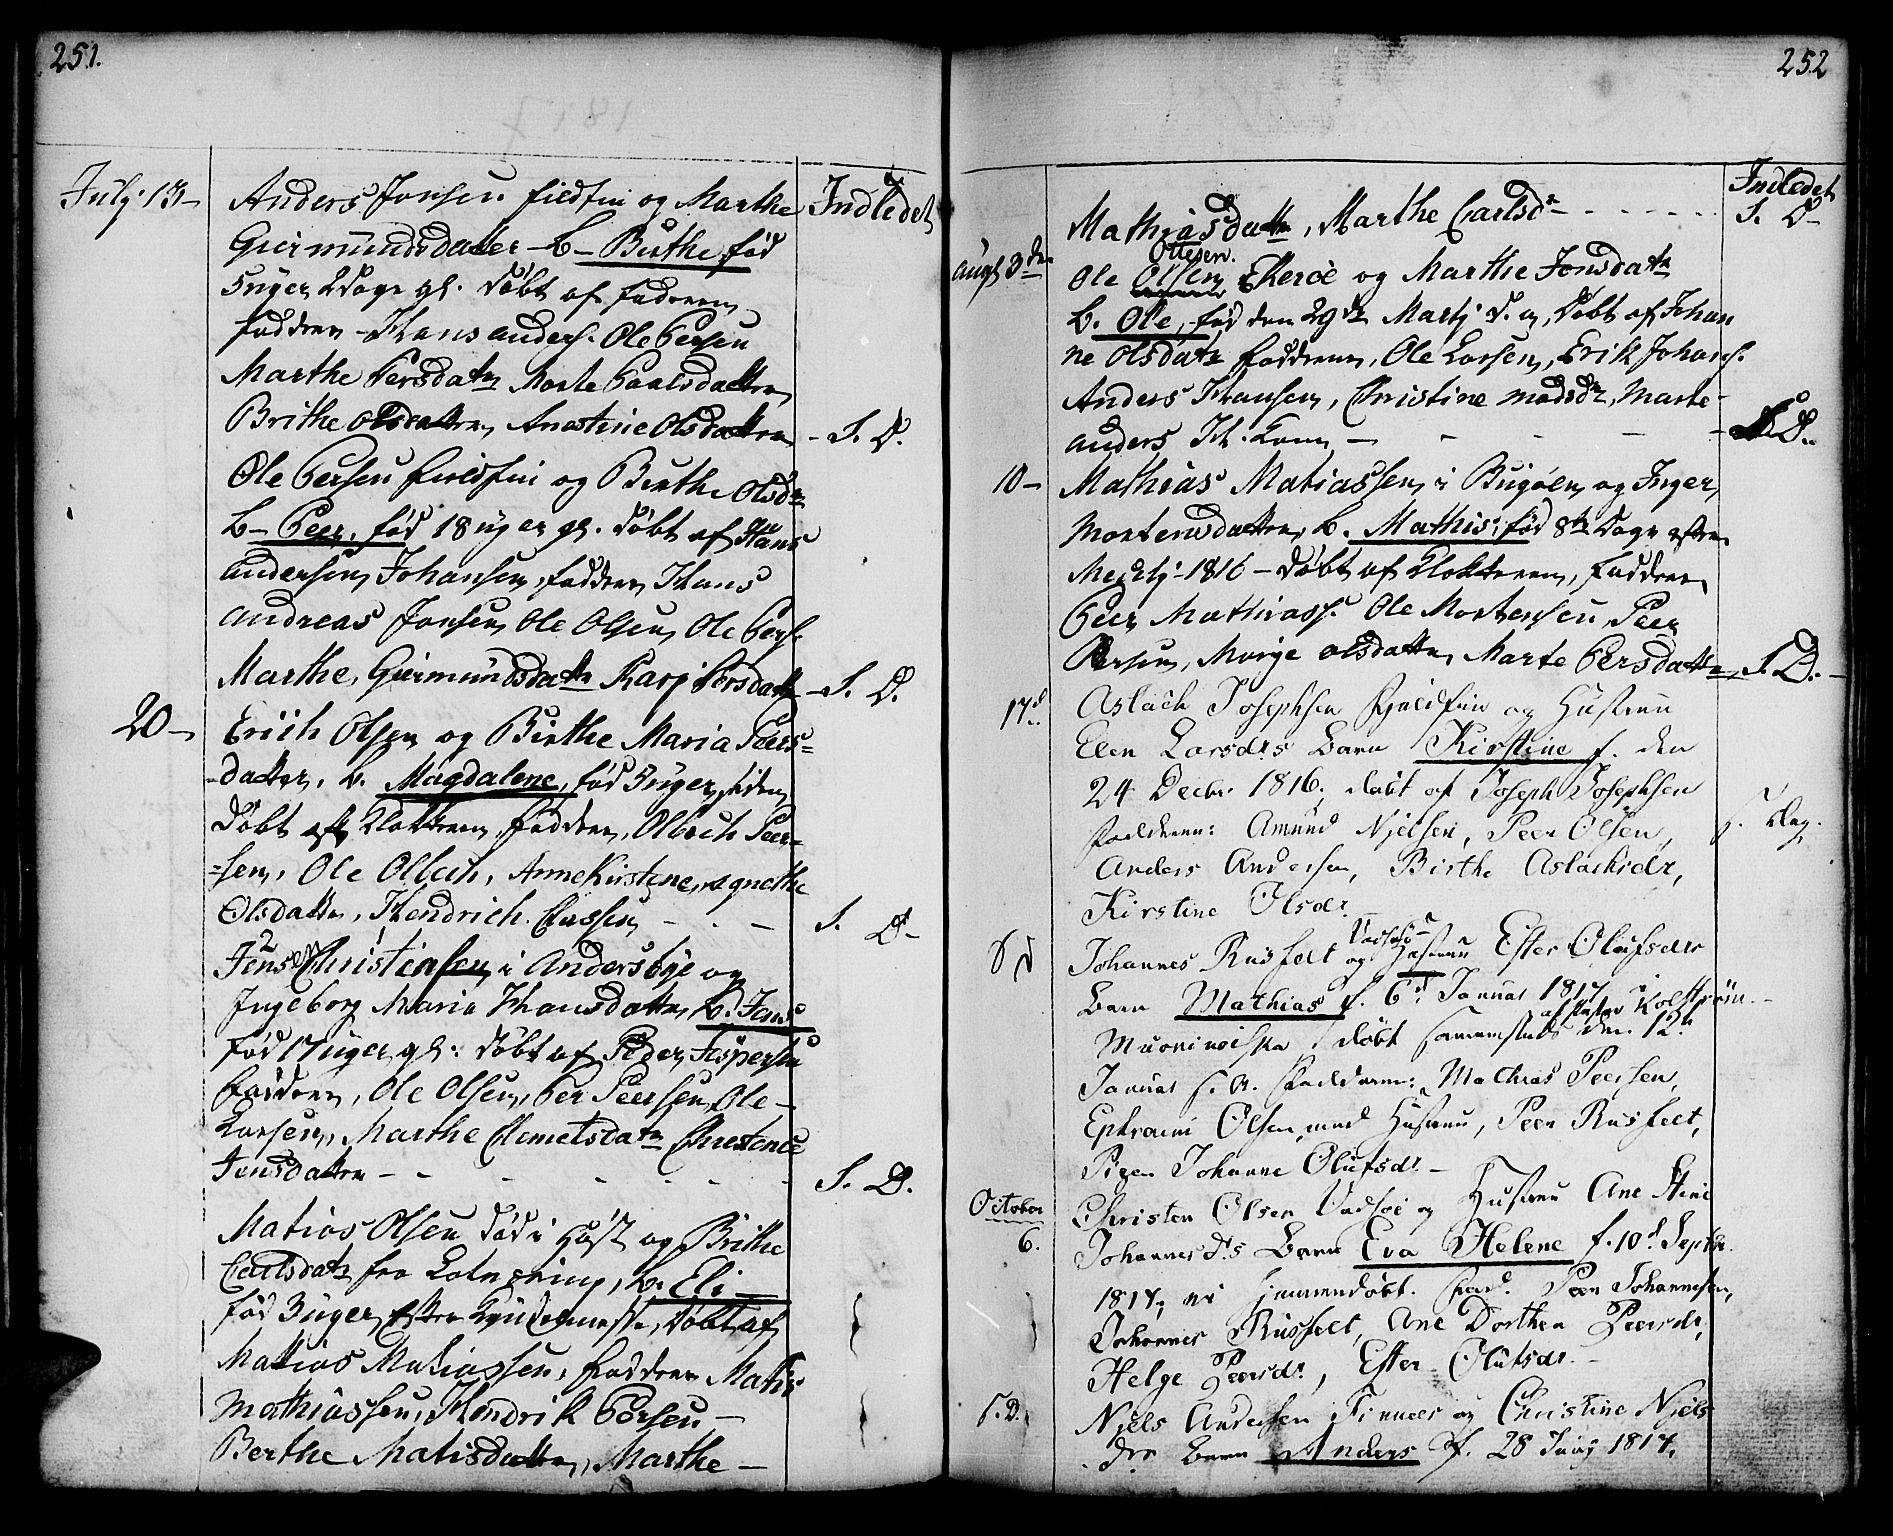 251.
July 13 –
Anders Jonsen fieldfin og Marthe
Indledet
Guirmundsdatter – b – Birthe, fød
3 uger 2 Dage gl. Døbt af faderen
faddren – Hans anders. Ole Persen
Marthe Persdatr Marte Paalsdatter
Brithe olsdatter, Anestine Olsdatter – S. D.
Ole Persen fieldfin og Birthe Olsdr
b – Peer, fød 18 uger gl. døbt af Hans
andersen, Johansen, faddren Hans
andreas Jonsen, Ole Olsen, Ole Pers.
Marthe, Guirmundsdatr Karj Persdatter – S. D.
20 –
Erich Olsen og Birthe Maria Peers-
-datter, b. Magdalene, fød 3 uger siden,
Døbt af Klokkeren, faddren, Olrich Peer-
-sen, Ole Olrich, Anne Kirstene, agnethe
Olsdatter, Hendrich Classen – . – S. D –
Jens Christensen i Andersbye og
Ingeborg Maria Hansdatter, b. Jens
fød 17 uger gl: døbt af Peder Jespersen
faddren, Ole Olsen, Per Peersen, Ole –
Larsen, Marthe Clemetsdatr Christence
Jensdatter – – – – – S. D.
Matias Olsen død i Høst og Brithe
Carlsdatr fra, b. Eli
fød 3 uger efter Kyndelmesse, døbt af
Matias Matiassen, faddren Matis
Mathiassen, Hendrik Persen –
Berthe Matisdatter, Marthe –
252
Indledet
Mathiasdatter, Marthe Carlsdr – – – – S. D –
Ottesen.
Augs 3de
Ole Olsen Ekerøe og Marthe Jonsdatr
b. Ole, fød den 29de Martj d. a, Døbt af Johan
ne Olsdatr faddrene, Ole Larsen, Erik Johans.
Anders Hansen, Christine madsdr, Marte –
anders H. – – – – S. D.
10 –
Mathias Matiassen, i Bugøen, og Inger,
Mortensdatter, b. Mathis, fød 8te Dage efter
1816 – Døbt af Klokkeren, faddren
Peer Mathiass. Ole Mortensen, Peer
Persen, Marge olsdatter, Marte Persdatter, S. D. –
17d.
Aslach Josephsen Fjeldfin og Hustrue
Elen Larsdrs barn Kirstine f. den
24 Decbr 1816, døbt af Joseph Josephsen
Fadderne: Amund Njelsen, Peer Olsen, s. Dag.
Anders Andersen, Birthe Aslachsdr,
Kirstine Olsdr.
S D
Vadsøe –
Johannes Rusfelt og Hustrue Ester Olufsdr
Barn Mathias f. 6d Januar 1817 i
Muonioiska døbt sammesteds den 12d
Januar s. a. Fadderne: Mathias Peersen,
Ephraim Olsen, med Hustrue, Peer Rusfelt,
Pigen Johanne Olufsdr. –
October
6.
Christen Olsen Vadsøe og Hustrue Ane Stine
Johannesdrs Barn Eva Helene f. 10d Septbr.
1817, er hjemmedøbt. Fad. Peer Johannesen,
Johannes Rusfelt, Ane Dorthea Peersdr,
Helge Peersdr, Ester Olufsdr. –
S. D.
Njels Andersen Finnes og Christine Njels
drs Barn Anders f. 28 Juny 1817,